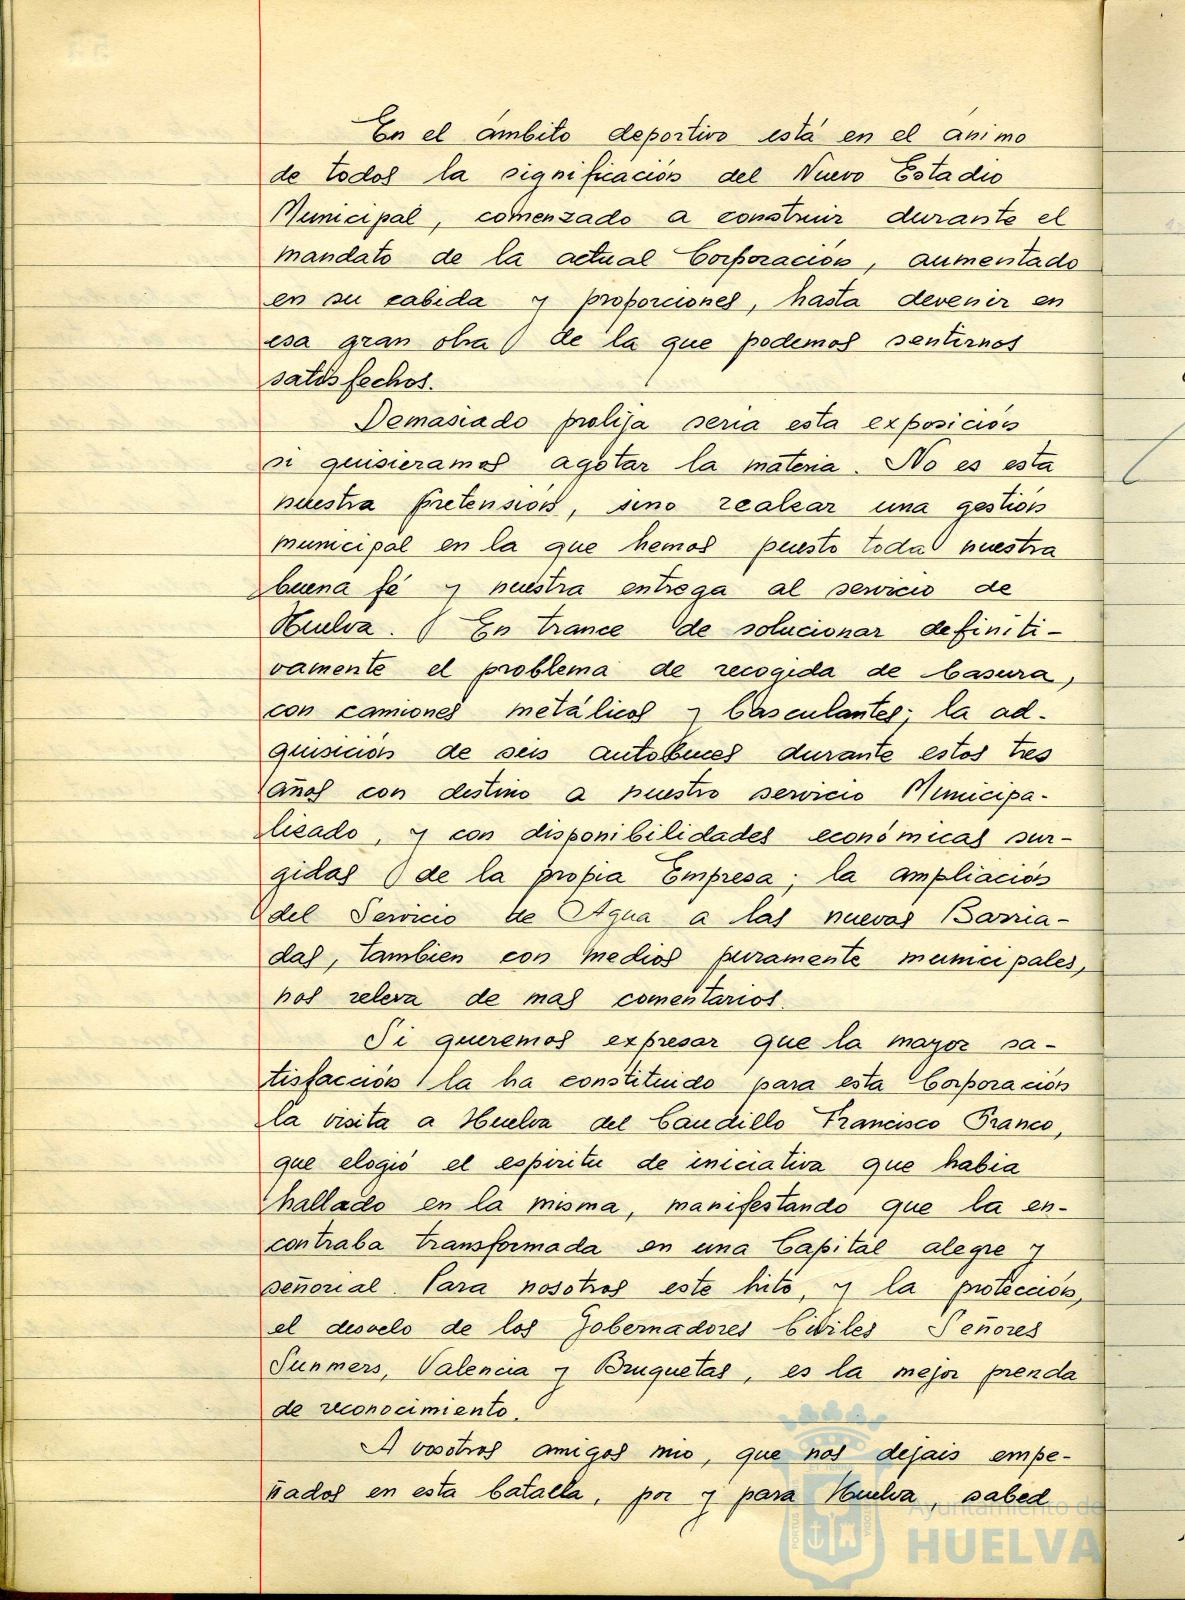 En el ámbito deportivo está en el ánimo
de todos la significación del Nuevo Estadio
Municipal, comenzado a construir durante el
mandato de la actual Corporación, aumentado
en su cabida y proporciones, hasta devenir en
esa gran obra de la que podemos sentirnos
satisfechos.
Demasiado prolija seria esta exposición
si quisieramos agotar la materia. No es esta
nuestra pretensión, sino realzar una gestión
municipal en la que hemos puesto toda nuestra
buena fé y nuestra entrega al servicio de
Huelva. En trance de solucionar definiti-
vamente el problema de recogida de basura,
con camiones metálicos y basculantes; la ad-
quisición de seis autobuses durante estos tres
años con destino a nuestro servicio Municipa-
lizado, y con disponibilidades económicas sur-
gidas de la propia Empresa; la ampliación
del Servicio de Agua a las nuevas Barria-
das, tambien con medios puramente municipales,
nos releva de mas comentarios.
Si queremos expresar que la mayor sa-
tisfacción la ha constituido para esta Corporación
la visita a Huelva del Caudillo Francisco Franco,
que elogió el espiritu de iniciativa que habia
hallado en la misma, manifestando que la en-
contraba transformada en una Capital alegre y
señorial. Para nosotros este hito, y la protección,
el desvelo de los Gobernadores Civiles Señores
Summers, Valencia y Bruquetas, es la mejor prenda
de reconocimiento.
A vosotros amigos mio, que nos dejais empe-
ñados en esta batalla, por y para Huelva, sabed
Ayuntamiento de
HUELVA